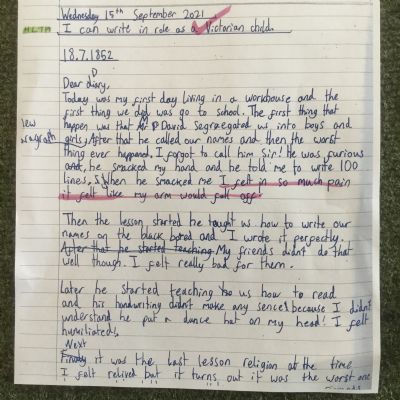 Wednesday 15th September 2021
HLTA I can write in role as a Victorian child.
18.7.1852
Dear diary, D
Today was my first day living in a workhouse and the
first thing we did was go to school. The first thing that
happen was that Mr D David Segregated us into boys and
new paragraph girls, After that he called our names and then the worst
thing ever happened, I forgot to call him Sir! He was furious
and, he smacked my hand and he told me to write 100
lines, When he smacked me I felt in so much pain
it felt like my arm would fall off.
Then the lesson started he taught us how to write our
names on the black bored and I wrote it perfectly.
After that he started teaching My friends didn't do that
well though. I felt really bad for them.
Later he started teaching us how to read
and his handwriting didn't make any sence because I didn't
understand he put a dunce hat on my head! I felt
humiliated!
Next
Finaly it was the last lesson religion at the time
I felt relived but it turns out it was the worst one